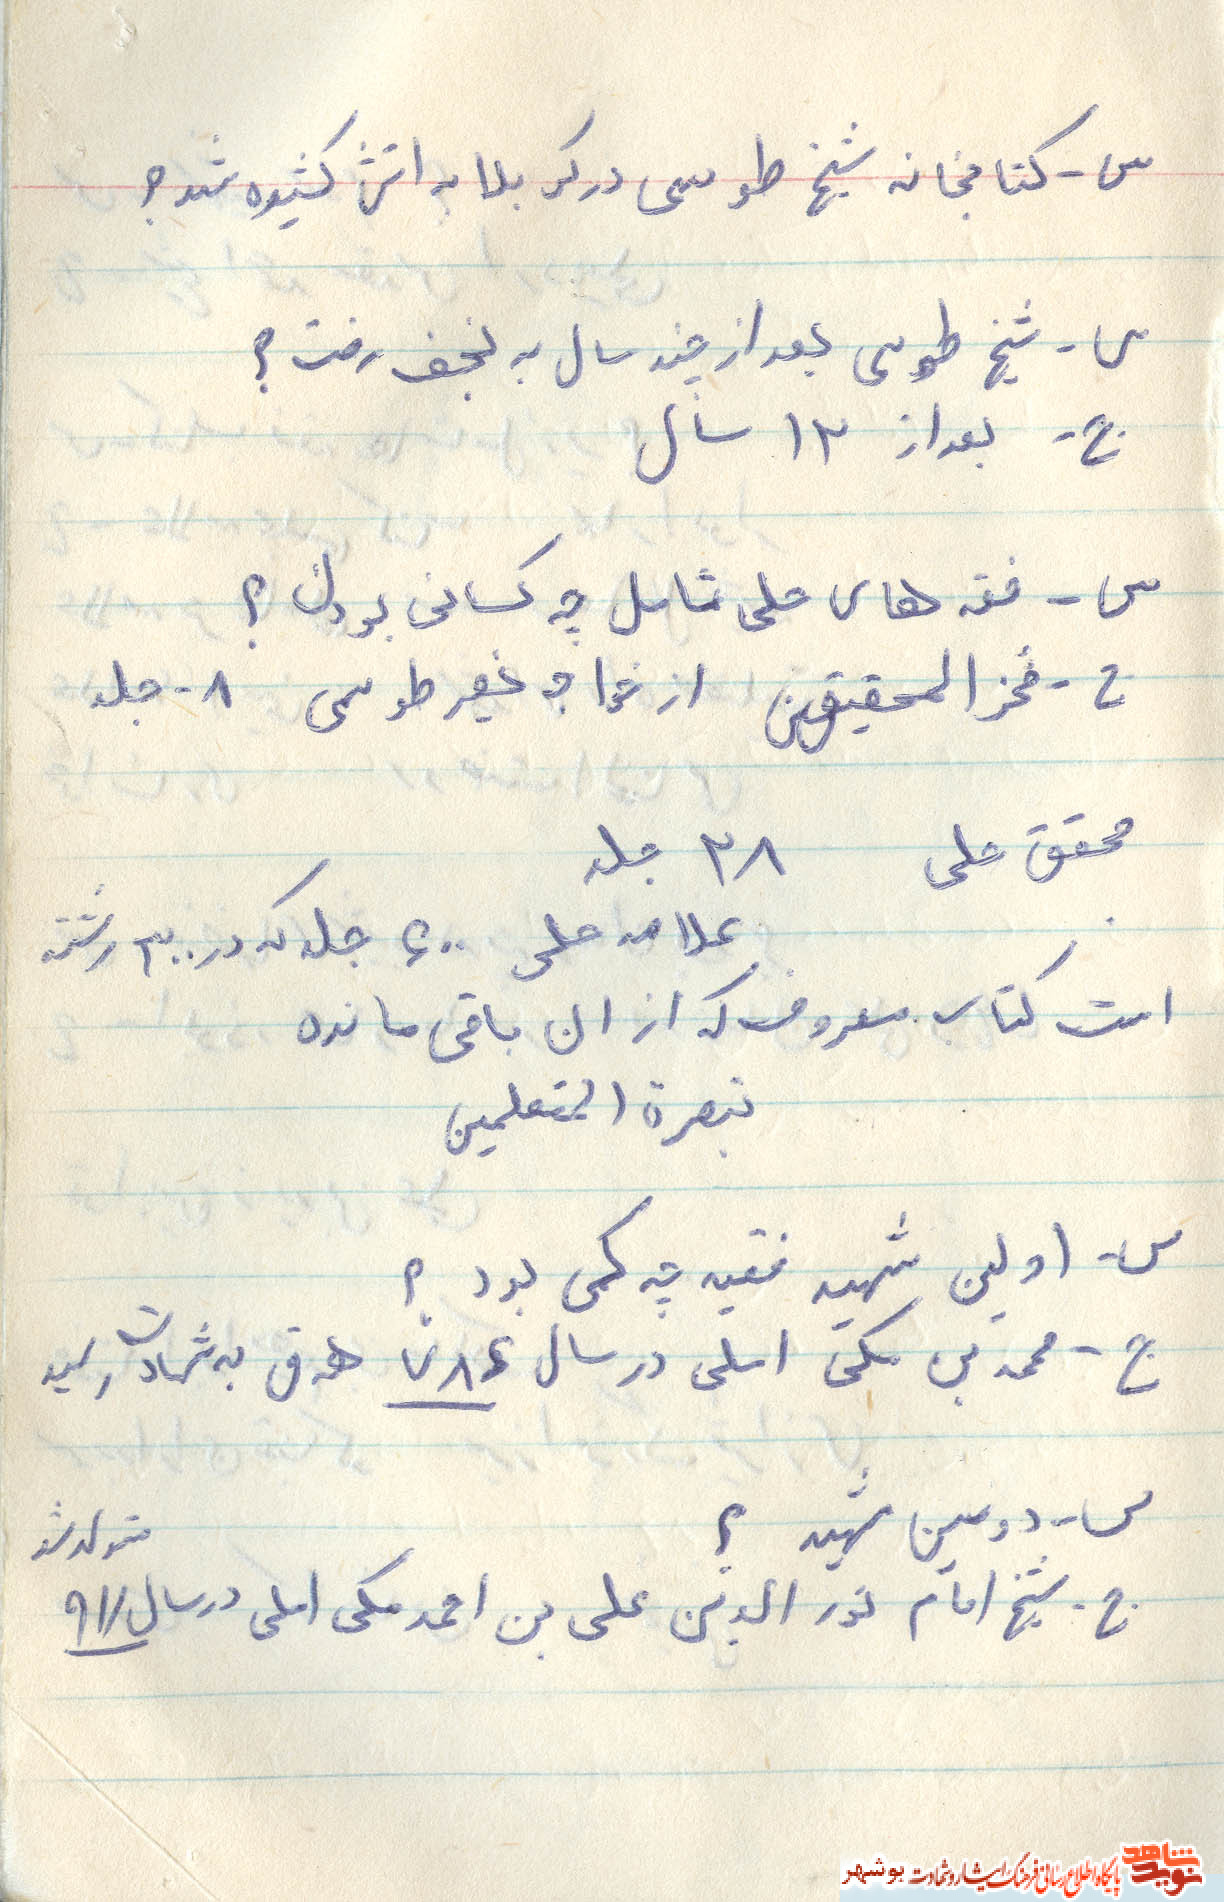 س - کتابخانه شیخ طوسی در کربلا به اتش کشیده شد؟
س - شیخ طوسی بعد از چند سال به نجف رفت؟
ج - بعد از ۱۲ سال
س - فقه های حلی شامل چه کسانی بودن؟
ج - فخر المحقیقین از خواجه نصیر طوسی ۸ - جلد
محقق حلی ۲۸ جلد
علامه حلی ۶۰۰ جلد که در ۳۰۰ رشته
است کتاب معروف که از ان باقی مانده
تبصرة المتعلمین
س - اولین شهید فقیه چه کسی بود؟
ج - محمد بن مکی املی در سال ۷۸۶ هـ ق به شهادت رسید
س - دومین شهید؟
ج - شیخ امام نور الدین علی بن احمد مکی املی در سال ۹۱۱ متولد شد
نوید شاهد پایگاه اطلاع رسانی فرهنگ ایثار و شهادت بوشهر